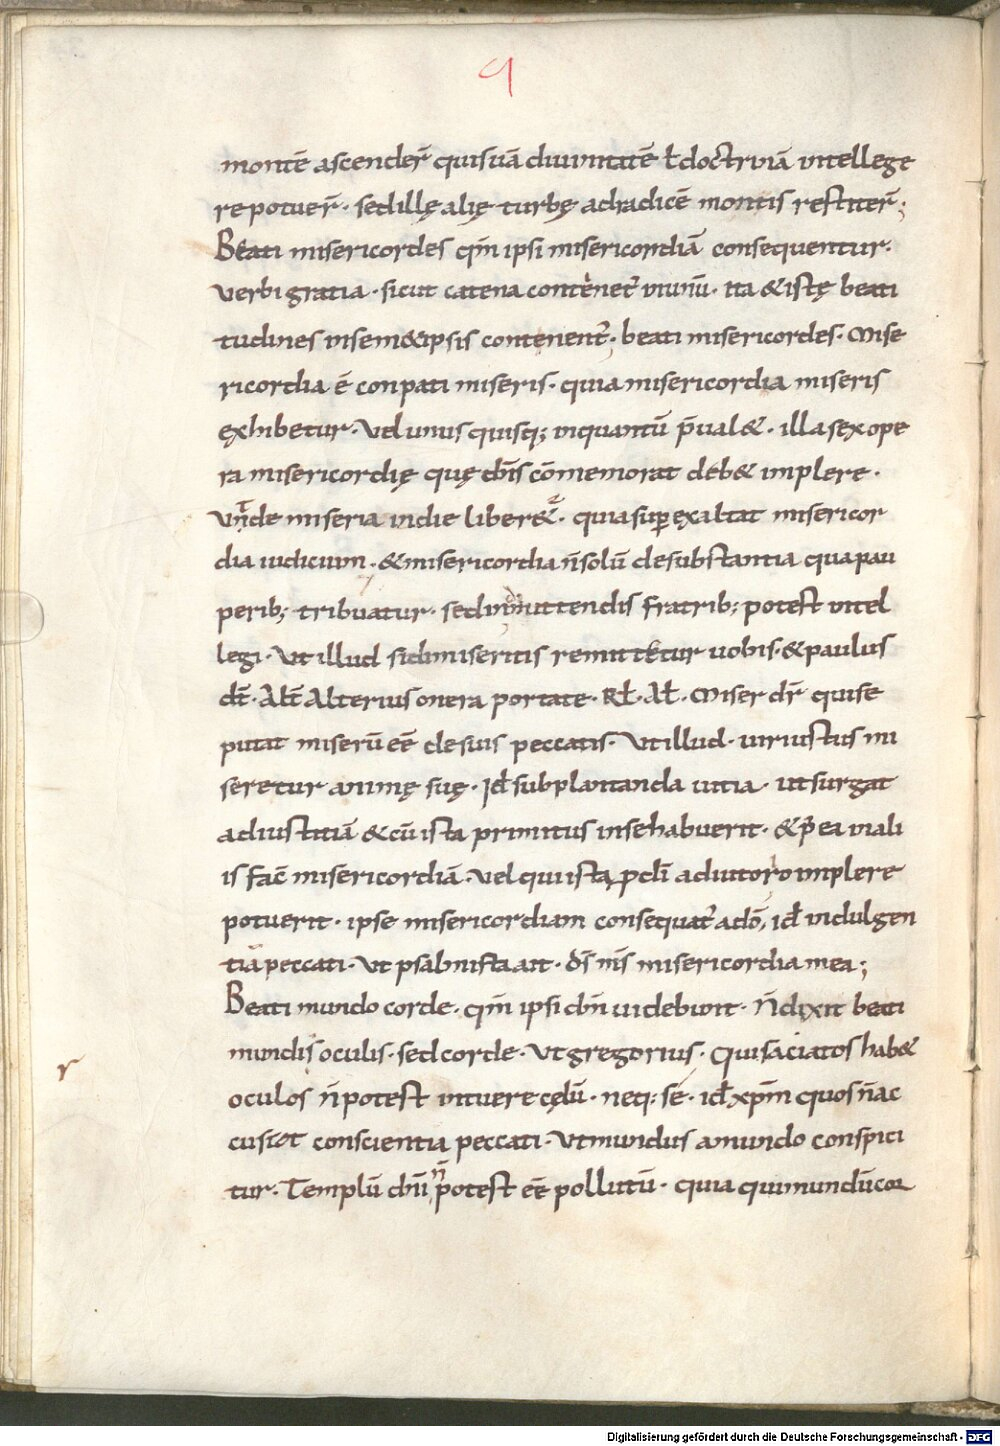 q
montē ascender̄ qui suā diuinitatē ł doctrinā intellege
re potuer̄ · sed illę alię turbę ad radicē montis restiter̄ ;
Beati misericordes qm̄ ipsi misericordiā consequentur ·
Verbi gratia · sicut catena contenet̄ uinū · ita & istę beati
tudines in sem & ipsis contenent̄ · beati misericordes · Mise
ricordia ē conpati miseris · quia misericordia miseris
exhibetur · Vel unus quisq; inquantū p̄ual& · illa sex ope
ra misericordię quę dn̄s cōmemorat deb& implere ·
Vn̄de miseria in die liber& · quia sup exaltat misericor
dia iudicium · & misericordia n̄ solū de substantia qua pau
perib; tribuatur · sed in mittendis fratrib; potest intel
legi · Vt illud si dimiseritis remittetur uobis · & paulus
dt̄ · Alt̄ Alterius onera portate · Rł · Ał · Miser dr̄ qui se
putat miserū eē de suis peccatis · Vt illud · uir iustus mi
seretur animę suę · Id subplantanda uitia · ut surgat
ad iustitiā & cū ista primitus in se habuerit · & p̄ ea in ali
is fac̄ misericordiā · Vel qui ista p dī adiutoro implere
potuerit · ipse misericordiam consequat̄ a dō, id indulgen
tiā peccati · Vt psalmista ait · ds̄ ms̄ misericordia mea ;
Beati mundo corde · qm̄ ipsi dn̄ uidebunt · N̄ dixit beati
mundis oculis · sed corde · Vt gregorius · Qui saciatos hab&
r
oculos n̄ potest intuere cęlū · neq; se · id xpm̄ quos n̄ ac
cusiot conscientia peccati · Vt mundus a mundo conspici
tur · Templū dn̄i n̄ potest eē pollutū · quia qui mundū cor
Digitalisierung gefördert durch die Deutsche Forschungsgemeinschaft - DFG